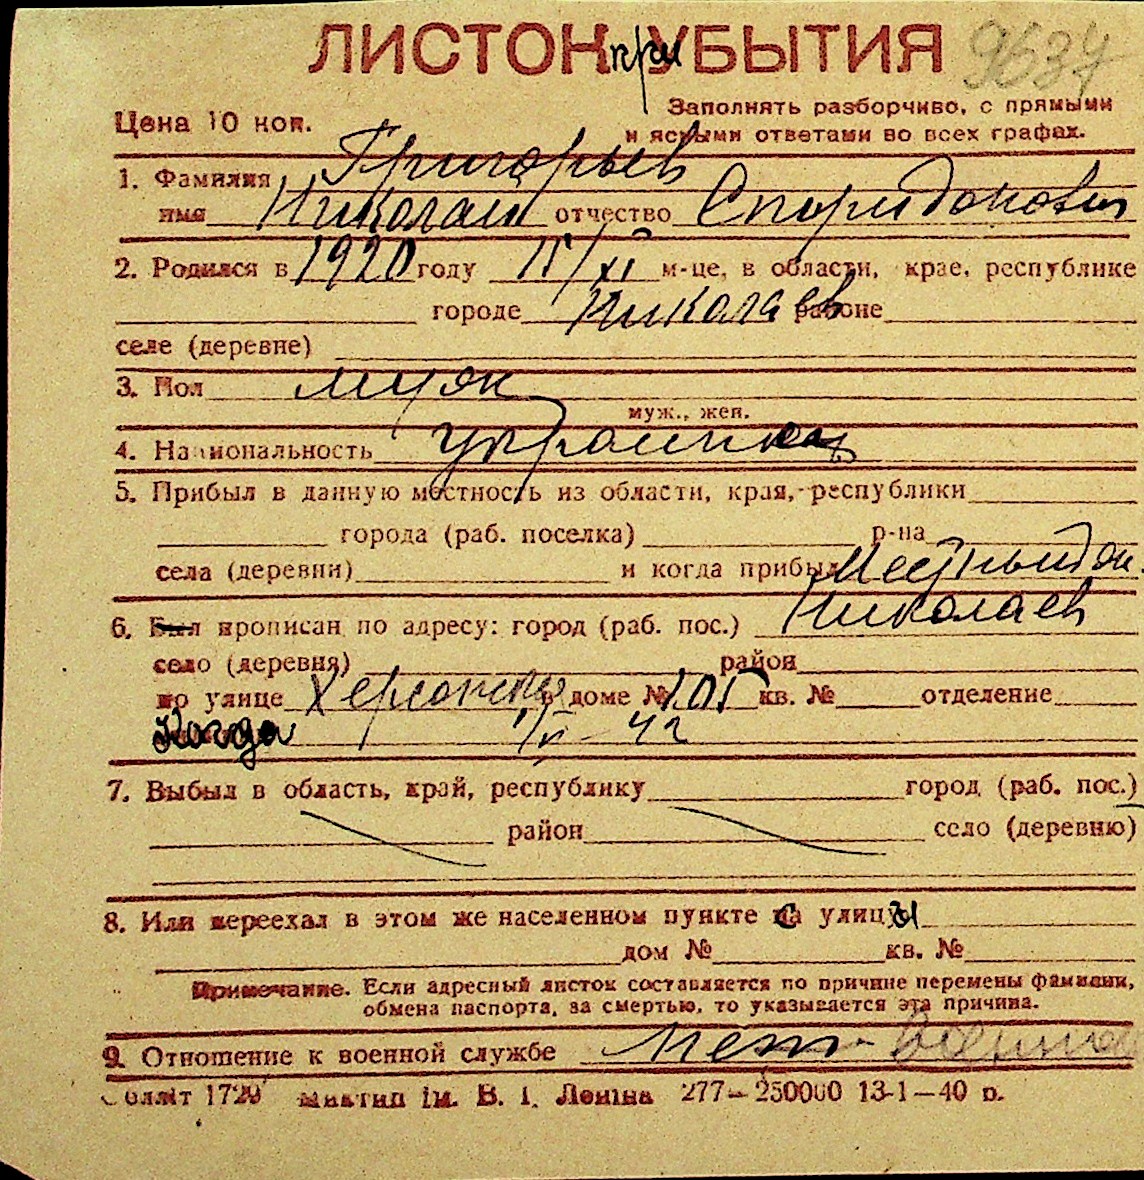 ЛИСТОК при УБЫТИЯ 9637
Заполнять разборчиво, с прямыми
Цена 10 коп. и ясными ответами во всех графах.
1. Фамилия Григорьев
имя Николай отчество Спиридонович
2. Родился в 1920 году м-це, в области, крае, республике
городе Николаев районе
селе (деревне)
3. Пол муж
муж., жен.
4. Национальность украинец
5. Прибыл в данную местность из области, края, республики
города (раб. поселка) р-на
села (деревни) и когда прибыл Местный
6. Был прописан по адресу: город (раб. пос.) Николаев
село (деревня) район
по улице Херсонская в доме № 101 кв. № отделение
Когда 42
7. Выбыл в область, край, республику город (раб. пос.)
район село (деревню)
8. Или переехал в этом же населенном пункте с улицы
дом № кв. №
Примечание. Если адресный листок составляется по причине перемены фамилии,
обмена паспорта, за смертью, то указывается эта причина.
9. Отношение к военной службе
ім. В. І. Леніна 277—250000 13-1—40 р.